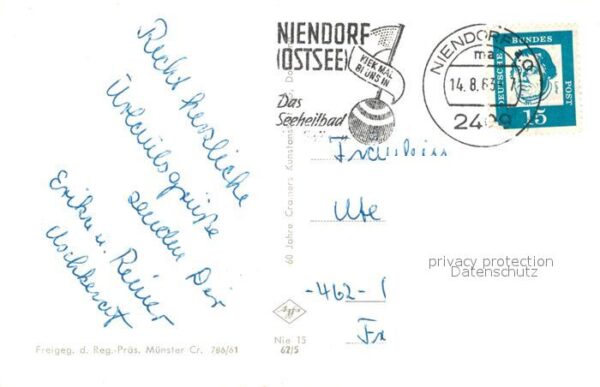 Recht herzliche
Urlaubsgrüße
senden Dir
Erika u. Reiner
NIENDORF
(OSTSEE)
KIEK MAL
BI UNS IN
Das
Seeheilbad
NIENDORF
14.8.63
2409
DEUTSCHE BUNDESPOST
15
Fräulein
Ute
-462-1
60 Jahre Cramers Kunstanstalt
privacy protection
Datenschutz
Nie 15
62/5
Freigeg. d. Reg.-Präs. Münster Cr. 786/61